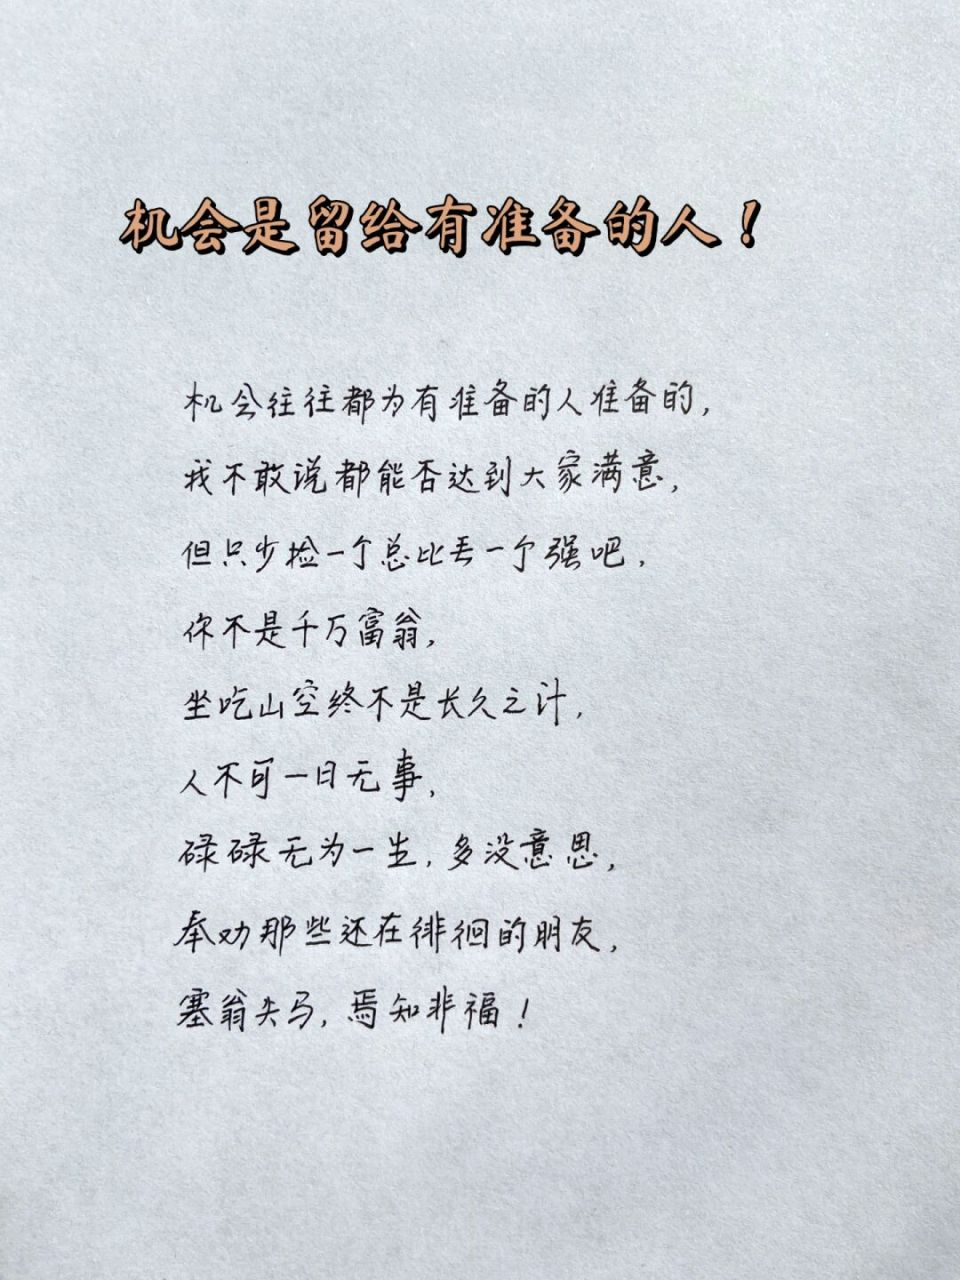 机会是留给有准备的人！
机会往往都为有准备的人准备的，
我不敢说都能否达到大家满意，
但只少捡一个总比丢一个强吧，
你不是千万富翁，
坐吃山空终不是长久之计，
人不可一日无事，
碌碌无为一生，多没意思，
奉劝那些还在徘徊的朋友，
塞翁失马，焉知非福！